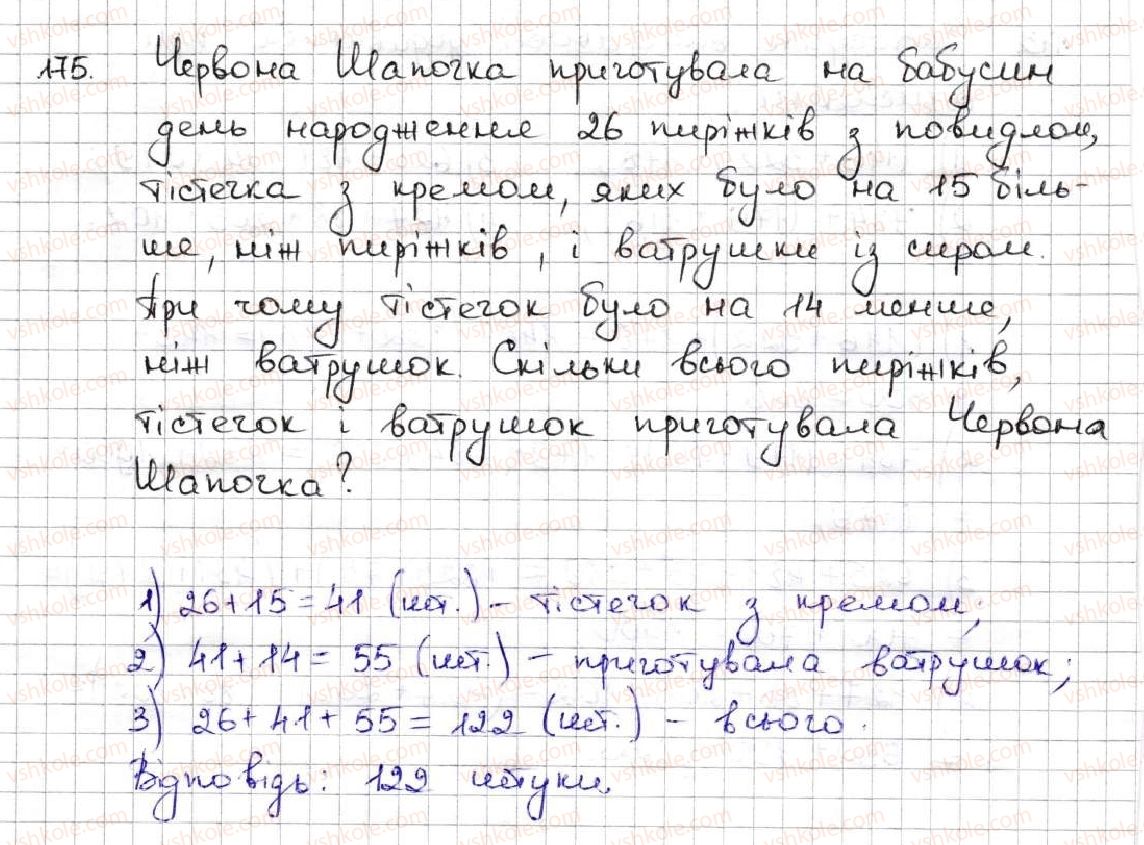 175. Червона Шапочка приготувала на бабусин
день народження 26 пиріжків з повидлом,
тістечка з кремом, яких було на 15 біль-
ше, ніж пиріжків, і ватрушки із сиром.
При чому тістечок було на 14 менше,
ніж ватрушок. Скільки всього пиріжків,
тістечок і ватрушок приготувала Червона
Шапочка?
1) 26+15=41 (шт.) - тістечок з кремом;
2) 41+14= 55 (шт.) - приготувала ватрушок;
3) 26+41+55=122 (шт.) - всього.
Відповідь: 122 штуки.